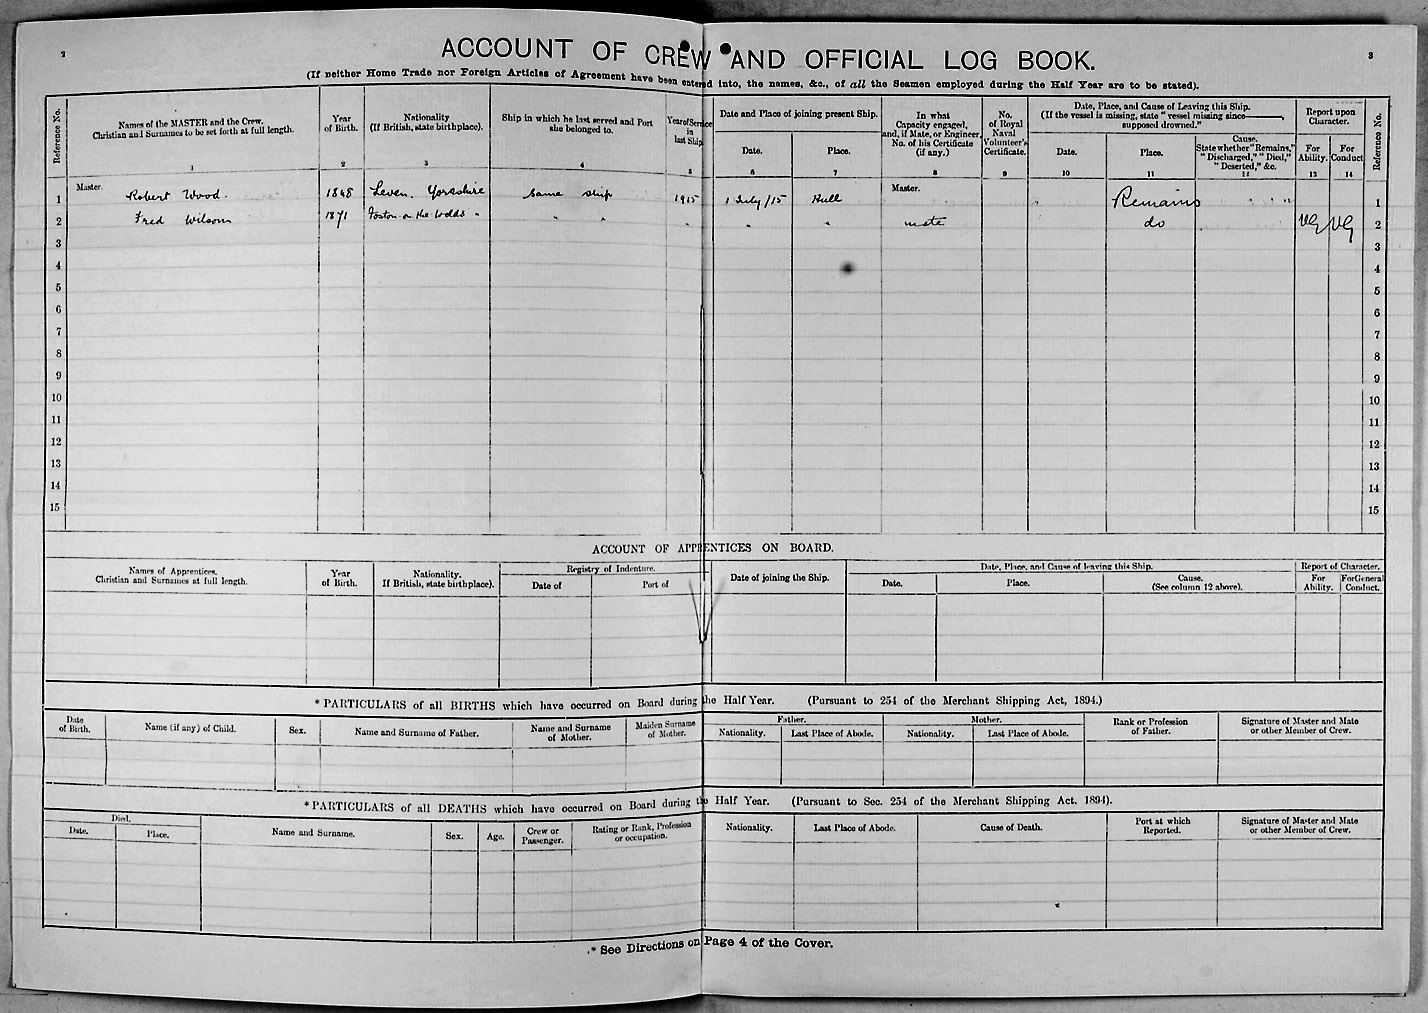 2
ACCOUNT OF CREW AND OFFICIAL LOG BOOK.
3
(If neither Home Trade nor Foreign Articles of Agreement have been entered into, the names, &c., of all the Seamen employed during the Half Year are to be stated).
Reference No.
Names of the MASTER and the Crew.
Christian and Surnames to be set forth at full length.
1
Year
of Birth.
2
Nationality
(If British, state birthplace).
3
Ship in which he last served and Port
she belonged to.
4
Year of Service
in
last Ship.
5
Date and Place of joining present Ship.
Date.
6
Place.
7
In what
Capacity engaged,
and, if Mate, or Engineer,
No. of his Certificate
(if any.)
8
No.
of Royal
Naval
Volunteer's
Certificate.
9
Date, Place, and Cause of Leaving this Ship.
(If the vessel is missing, state "vessel missing since ———,
supposed drowned."
Date.
10
Place.
11
Cause.
State whether "Remains,"
"Discharged," "Died,"
"Deserted," &c.
12
Report upon
Character.
For
Ability.
13
For
Conduct
14
Reference No.
1 Master. Robert Wood. 1848 Leven. Yorkshire Same ship 1915 1 July/15 Hull Master. Remains 1
2 Fred Wilson 1871 Foston on the Wolds " " " " " " mate do VG VG 2
3 3
4 4
5 5
6 6
7 7
8 8
9 9
10 10
11 11
12 12
13 13
14 14
15 15
ACCOUNT OF APPRENTICES ON BOARD.
Names of Apprentices,
Christian and Surnames at full length.
Year
of Birth.
Nationality.
If British, state birthplace).
Registry of Indenture.
Date of
Port of
Date of joining the Ship.
Date, Place, and Cause of leaving this Ship.
Date.
Place.
Cause.
(See column 12 above).
Report of Character.
For
Ability.
For General
Conduct.
* PARTICULARS of all BIRTHS which have occurred on Board during the Half Year. (Pursuant to 254 of the Merchant Shipping Act, 1894.)
Date
of Birth.
Name (if any) of Child.
Sex.
Name and Surname of Father.
Name and Surname
of Mother.
Maiden Surname
of Mother.
Father.
Nationality.
Last Place of Abode.
Mother.
Nationality.
Last Place of Abode.
Rank or Profession
of Father.
Signature of Master and Mate
or other Member of Crew.
* PARTICULARS of all DEATHS which have occurred on Board during the Half Year. (Pursuant to Sec. 254 of the Merchant Shipping Act. 1894).
Died.
Date.
Place.
Name and Surname.
Sex.
Age.
Crew or
Passenger.
Rating or Rank, Profession
or occupation.
Nationality.
Last Place of Abode.
Cause of Death.
Port at which
Reported.
Signature of Master and Mate
or other Member of Crew.
* See Directions on Page 4 of the Cover.